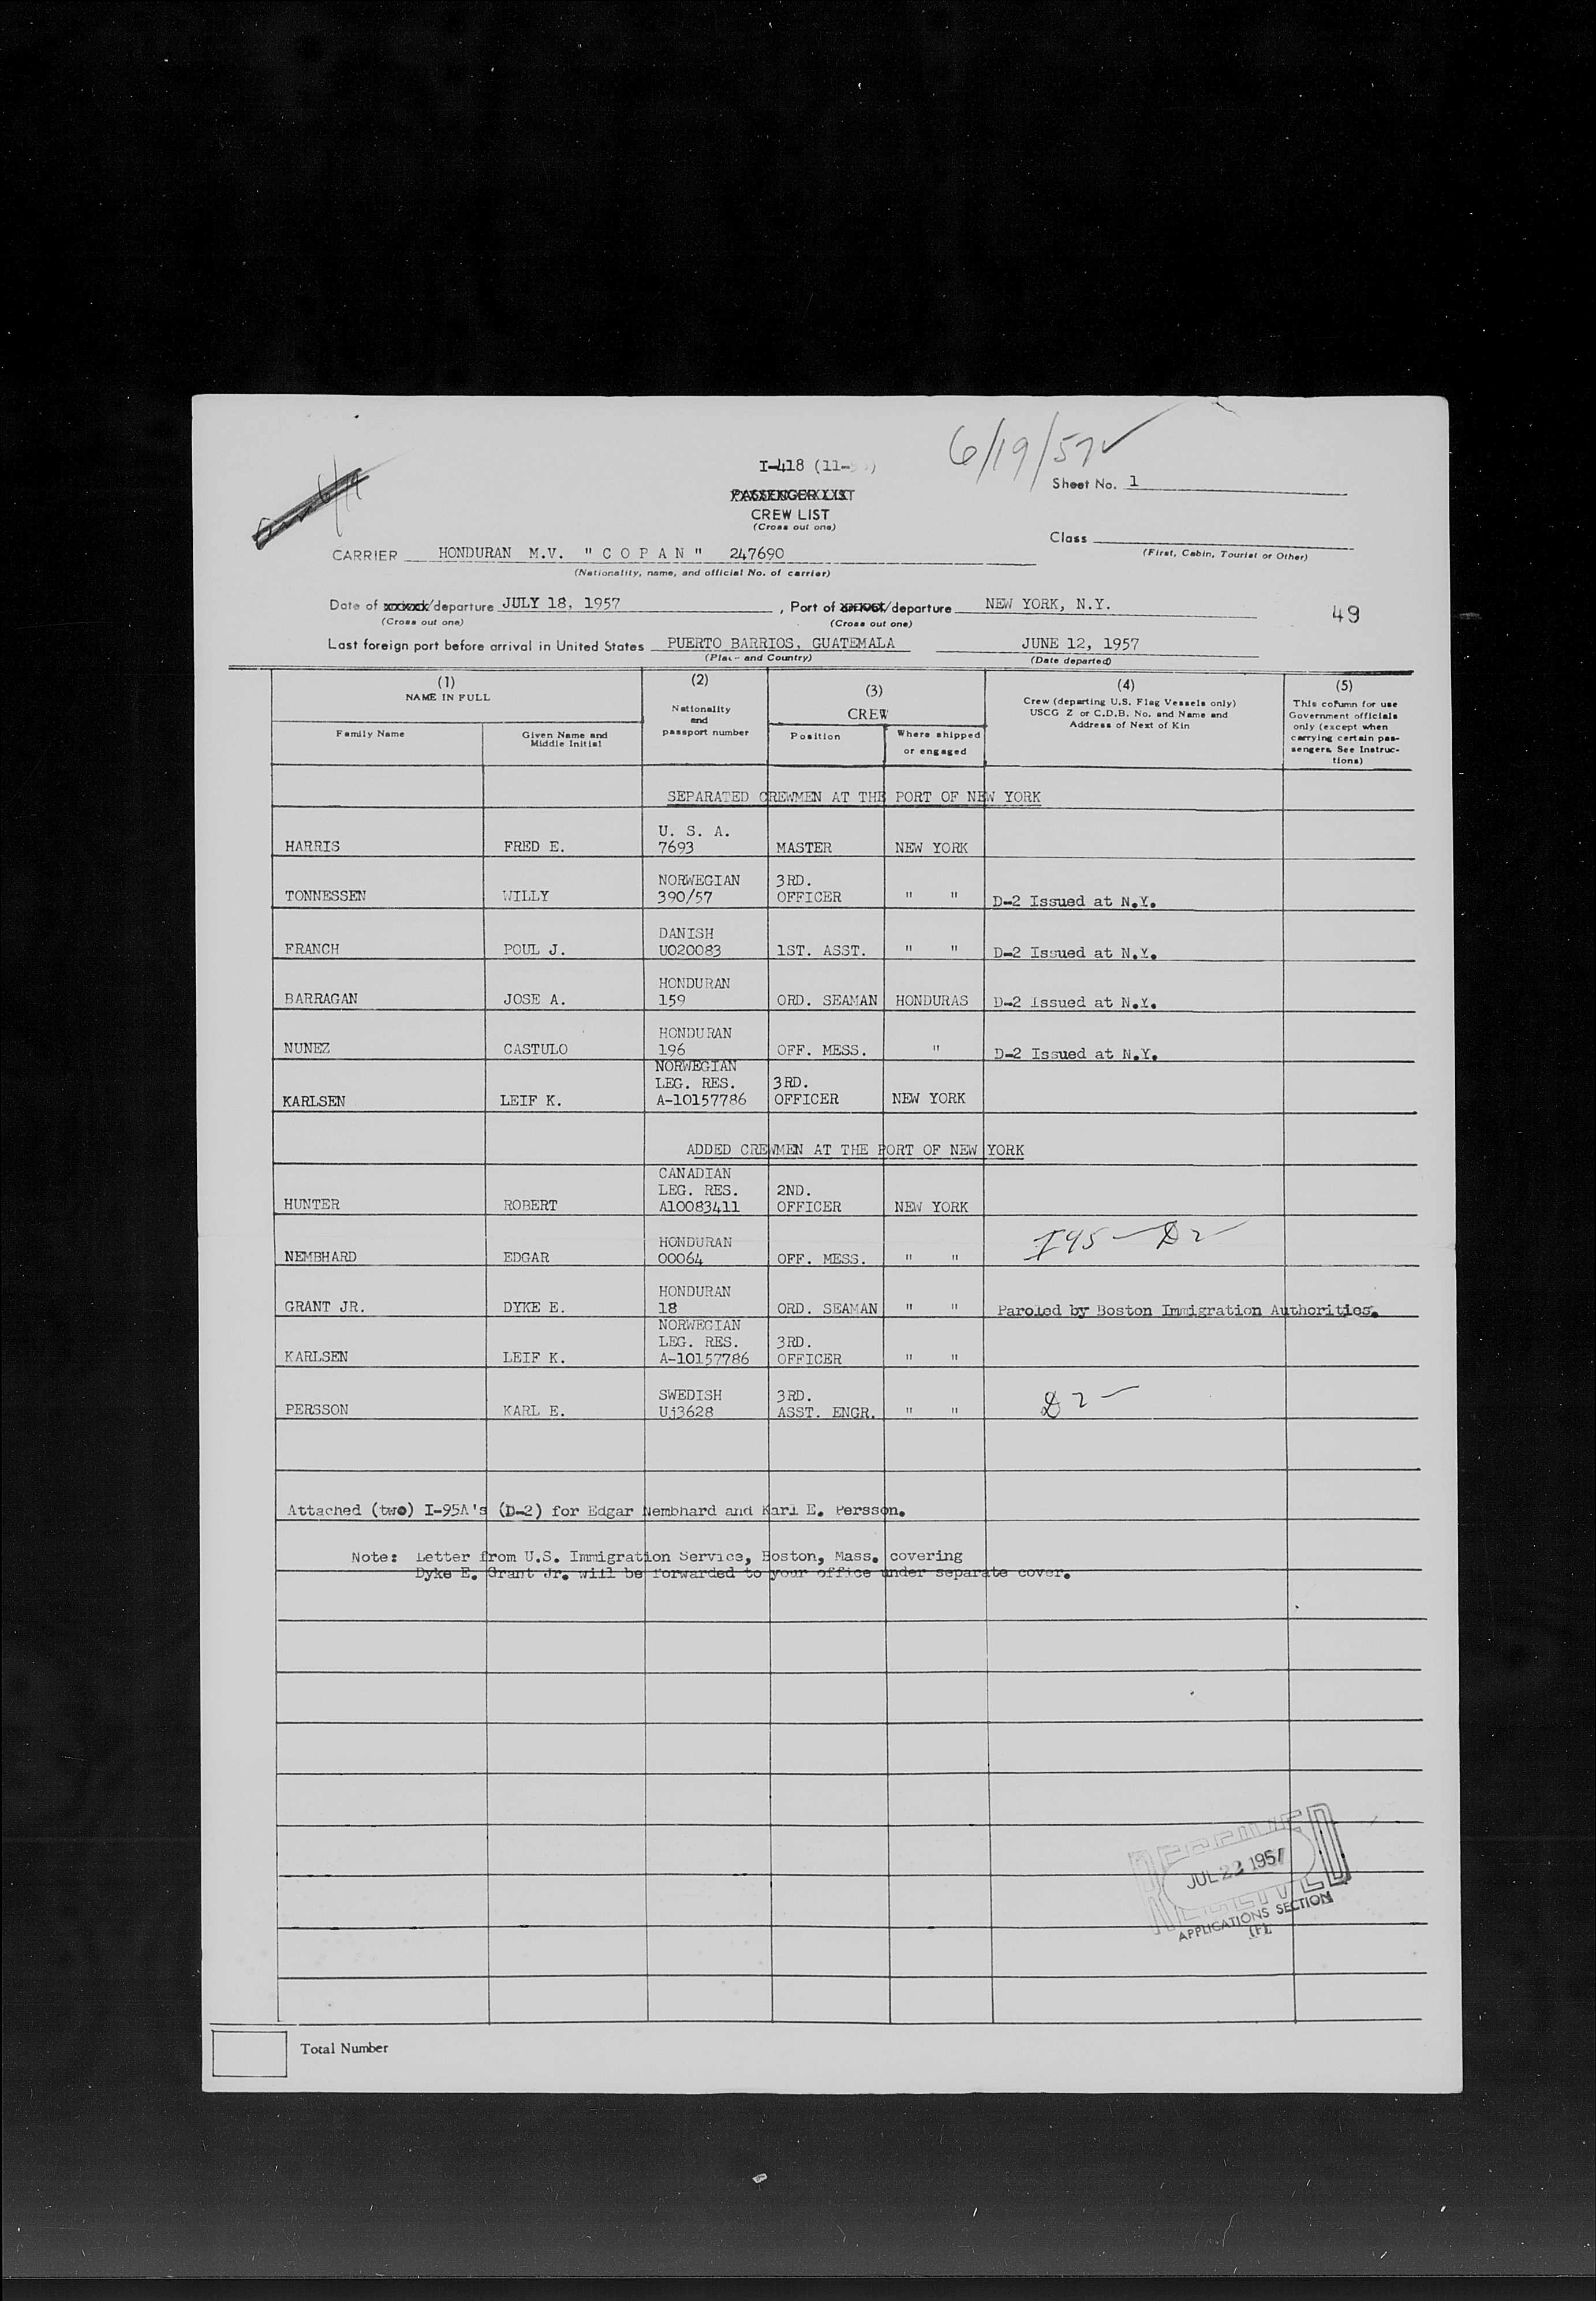 6/19/57
I-418 (11-
Sheet No. 1
PASSENGER LIST
CREW LIST
(Cross out one)
Class
(First, Cabin, Tourist or Other)
CARRIER HONDURAN M.V. " C O P A N " 247690
(Nationality, name, and official No. of carrier)
Date of /departure JULY 18, 1957, Port of /departure NEW YORK, N.Y.
(Cross out one) (Cross out one)
49
Last foreign port before arrival in United States PUERTO BARRIOS, GUATEMALA JUNE 12, 1957
(Place and Country) (Date departed)
(1) (2) (3) (4) (5)
NAME IN FULL
Family Name
Given Name and Middle Initial
Nationality and passport number
CREW
Position
Where shipped or engaged
Crew (departing U.S. Flag Vessels only)
USCG Z or C.D.B. No. and Name and
Address of Next of Kin
This column for use
Government officials
only (except when
carrying certain pas-
sengers. See Instruc-
tions)
SEPARATED CREWMEN AT THE PORT OF NEW YORK
U. S. A.
HARRIS FRED E. 7693 MASTER NEW YORK
NORWEGIAN 3RD.
TONNESSEN WILLY 390/57 OFFICER " " D-2 Issued at N.Y.
DANISH
FRANCH POUL J. U020083 1ST. ASST. " " D-2 Issued at N.Y.
HONDURAN
BARRAGAN JOSE A. 159 ORD. SEAMAN HONDURAS D-2 Issued at N.Y.
HONDURAN
NUNEZ CASTULO 196 OFF. MESS. " D-2 Issued at N.Y.
NORWEGIAN
LEG. RES. 3RD.
KARLSEN LEIF K. A-10157786 OFFICER NEW YORK
ADDED CREWMEN AT THE PORT OF NEW YORK
CANADIAN
LEG. RES. 2ND.
HUNTER ROBERT A10083411 OFFICER NEW YORK
HONDURAN
NEMBHARD EDGAR 00064 OFF. MESS. " " I95 - D2
HONDURAN
GRANT JR. DYKE E. 18 ORD. SEAMAN " " Paroled by Boston Immigration Authorities.
NORWEGIAN
LEG. RES. 3RD.
KARLSEN LEIF K. A-10157786 OFFICER " "
SWEDISH 3RD.
PERSSON KARL E. Uj3628 ASST. ENGR. " " D2 -
Attached (two) I-95A's (D-2) for Edgar Nembhard and Karl E. Persson.
Note: Letter from U.S. Immigration Service, Boston, Mass. covering
Dyke E. Grant Jr. will be forwarded to your office under separate cover.
RECEIVED
JUL 22 1957
RECEIVED
APPLICATIONS SECTION
Total Number